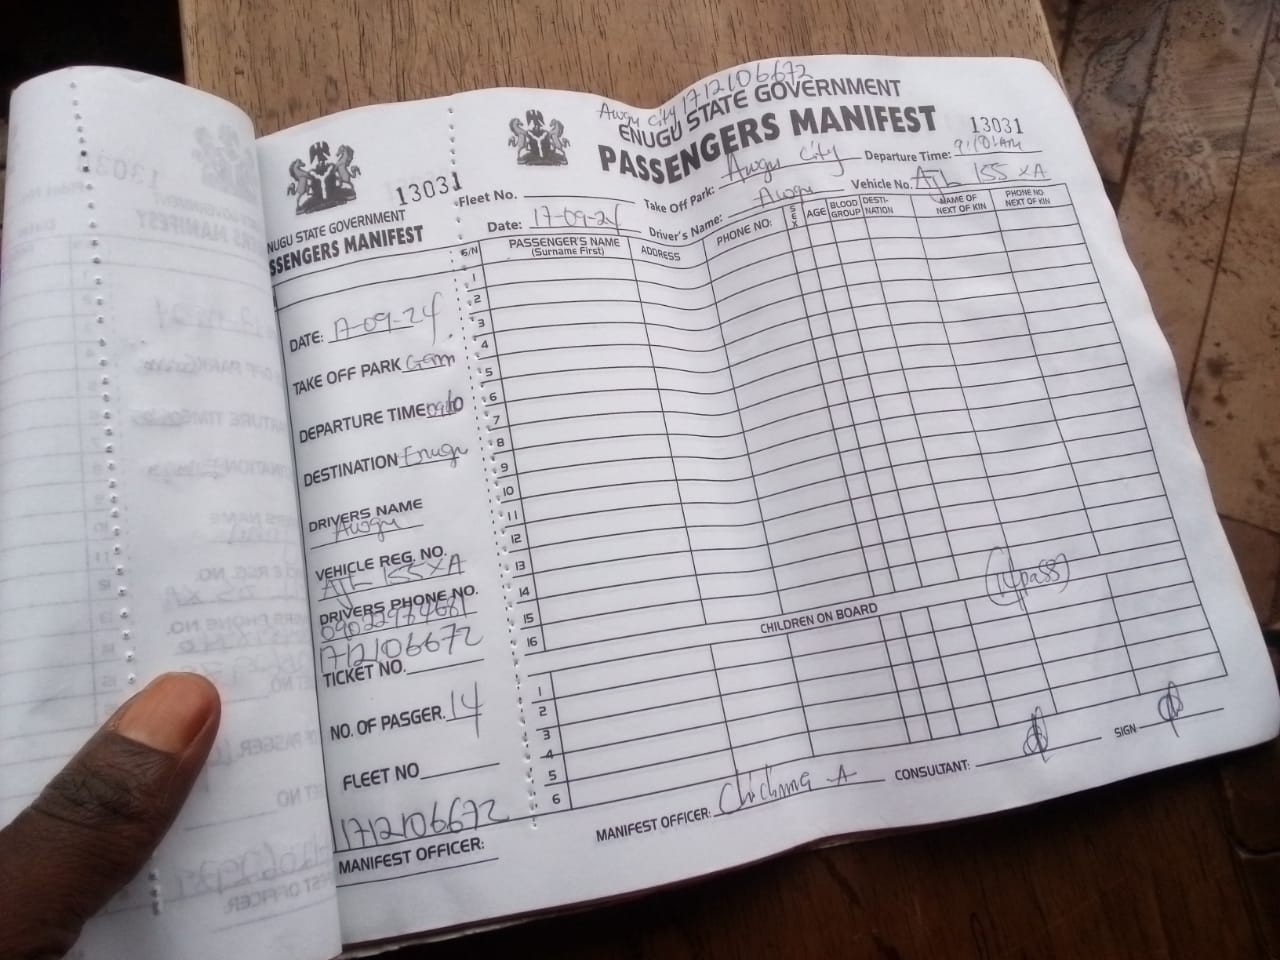 13031
ENUGU STATE GOVERNMENT
PASSENGERS MANIFEST
DATE: 17-09-24
TAKE OFF PARK
DEPARTURE TIME
DESTINATION Enugu
DRIVERS NAME
Awgu
VEHICLE REG. NO.
155 XA
DRIVERS PHONE NO.
1712106672
TICKET NO.
NO. OF PASGER. 14
FLEET NO
1712106672
MANIFEST OFFICER:
Awgu City 1712106672
ENUGU STATE GOVERNMENT
PASSENGERS MANIFEST
13031
Fleet No. Take Off Park: Awgu City Departure Time:
Date: 17-09-24 Driver's Name: Awgu Vehicle No. 155 XA
S/N PASSENGER'S NAME (Surname First) ADDRESS PHONE NO: SEX AGE BLOOD GROUP DESTINATION NAME OF NEXT OF KIN PHONE NO. NEXT OF KIN
1
2
3
4
5
6
7
8
9
10
11
12
13
14
15
16
14 pass
CHILDREN ON BOARD
1
2
3
4
5
6
MANIFEST OFFICER: A CONSULTANT: SIGN